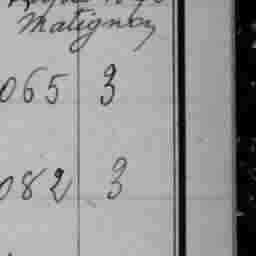 Matignon
065 3
082 3